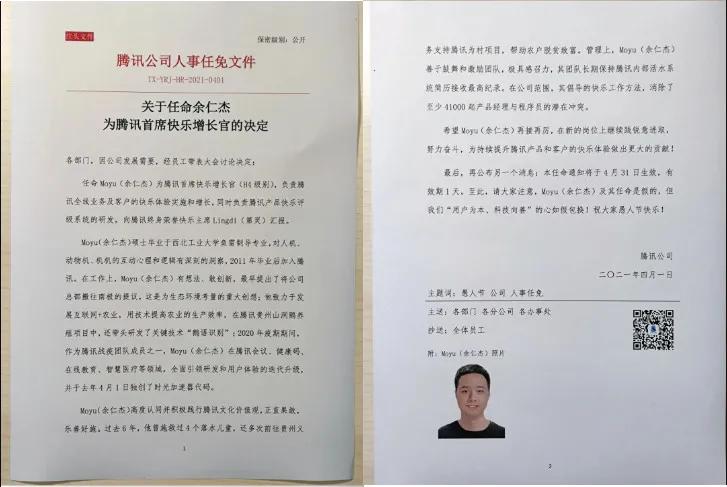 红头文件
保密级别：公开
腾讯公司人事任免文件
TX-YRJ-HR-2021-0401
关于任命余仁杰
为腾讯首席快乐增长官的决定
各部门，因公司发展需要，经员工带表大会讨论决定：
任命 Moyu（余仁杰）为腾讯首席快乐增长官（H4 级别），负责腾
讯全线业务及客户的快乐体验实施和增长，同时负责腾讯产品快乐评
级系统的研发，向腾讯终身荣誉快乐主席 Lingdi（第灵）汇报。
Moyu（余仁杰）硕士毕业于西北工业大学鱼雷制导专业，对人机、
动物机、机机的互动心理和逻辑有深刻的洞察，2011 年毕业后加入腾
讯。在工作上，Moyu（余仁杰）有想法、敢创新，最早提出了将公司
总部搬往南极的提议，这是为生态环境考量的重大创想；他致力于发
展互联网+农业，用技术提高农业的生产效率，在腾讯贵州山洞鹅养
殖项目中，还带头研发了关键技术“鹅语识别”；2020 年疫期期间，
作为腾讯战疫团队成员之一，Moyu（余仁杰）在腾讯会议、健康码、
在线教育、智慧医疗等领域，全面引领研发和用户体验的迭代升级，
并于去年 4 月 1 日独创了时光加速器代码。
Moyu（余仁杰）高度认同并积极践行腾讯文化价值观，正直果敢，
乐善好施。过去 6 年，他曾施救过 4 个落水儿童，还多次前往贵州义
1
务支持腾讯为村项目，帮助农户脱贫致富。管理上，Moyu（余仁杰）
善于鼓舞和激励团队，极具感召力，其团队长期保持腾讯内部活水系
统简历接收最高纪录。在公司范围，其倡导的快乐工作方法，消除了
至少 41000 起产品经理与程序员的潜在冲突。
希望 Moyu（余仁杰）再接再历，在新的岗位上继续践锐意进取，
努力奋斗，为持续提升腾讯产品和客户的快乐体验做出更大的贡献！
最后，再公布另一个消息：本任命通知将于 4 月 31 日生效，有
效期 1 天。至此，请大家注意，Moyu（余仁杰）及其任命是假的，但
我们“用户为本、科技向善”的心如假包换！祝大家愚人节快乐！
腾讯公司
二〇二一年四月一日
主题词：愚人节 公司 人事任免
主送：各部门 各分公司 各办事处
抄送：全体员工
附：Moyu（余仁杰）照片
2